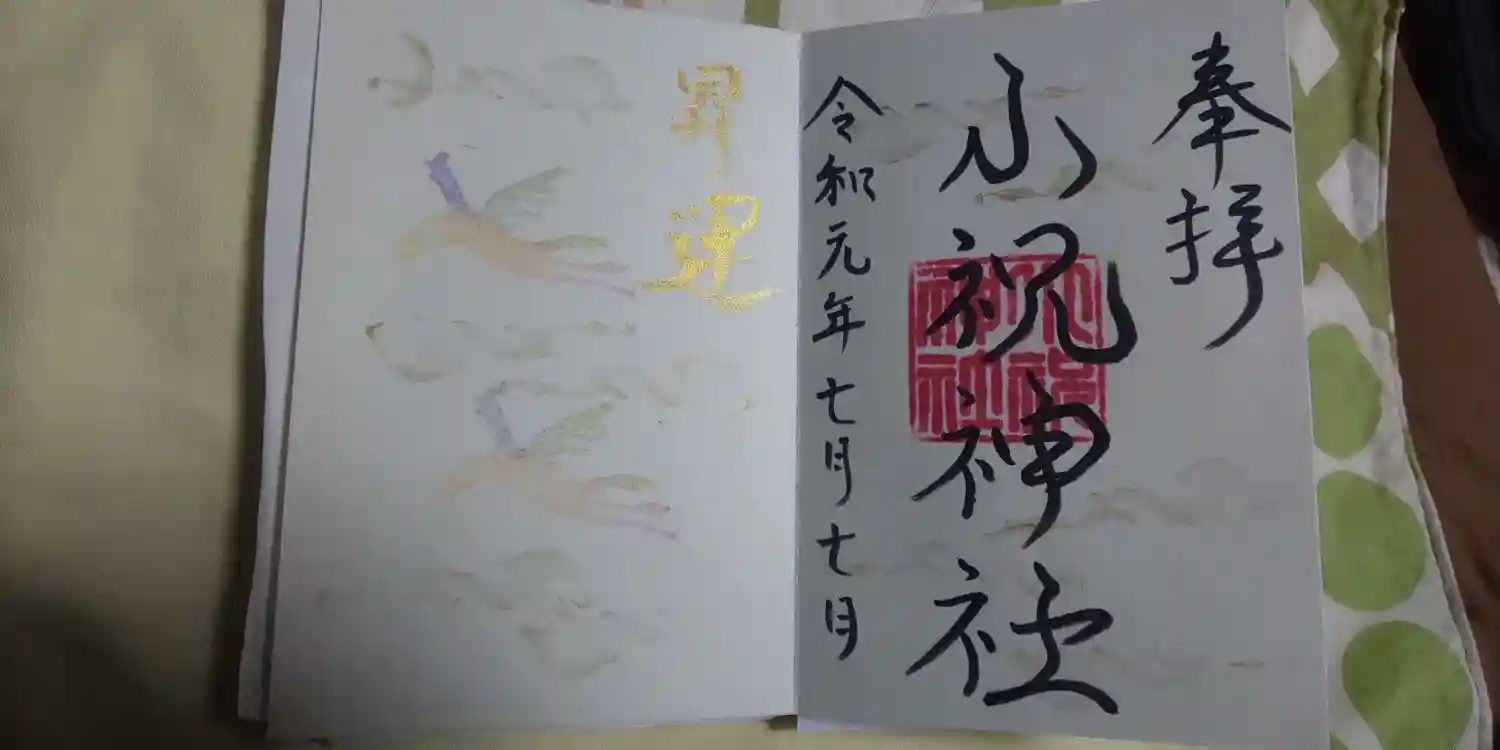 奉拝
小祝神社
令和元年七月七日
開運
小祝
神社